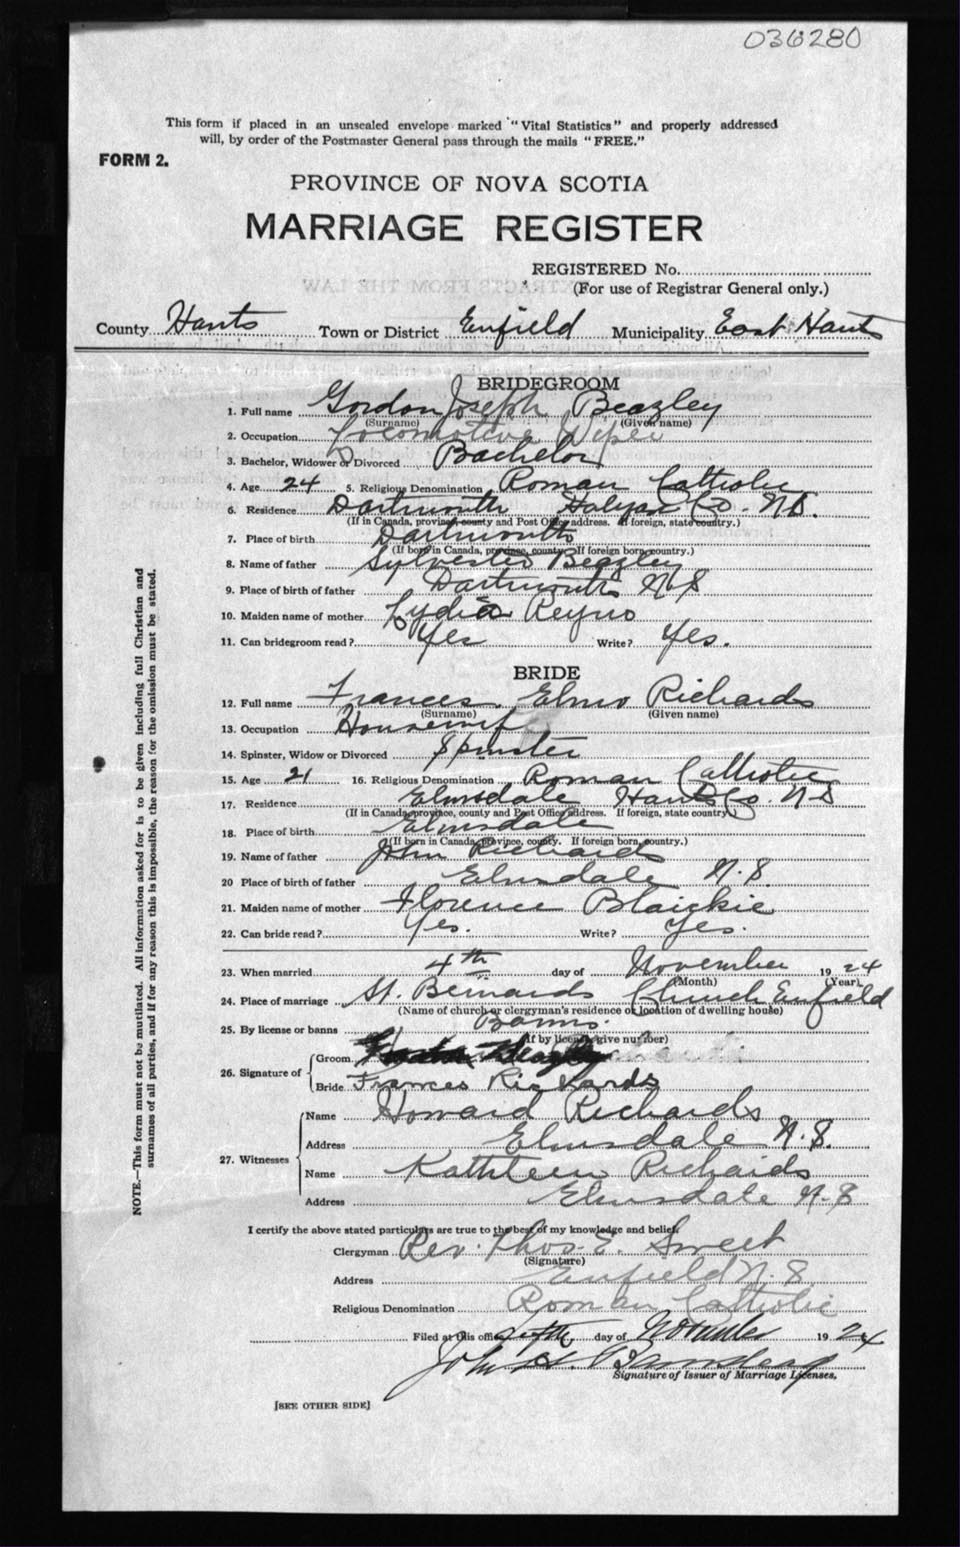 036280
This form if placed in an unsealed envelope marked "Vital Statistics" and properly addressed
will, by order of the Postmaster General pass through the mails "FREE."
FORM 2.
PROVINCE OF NOVA SCOTIA
MARRIAGE REGISTER
REGISTERED No.
(For use of Registrar General only.)
County Hants Town or District Enfield Municipality East Hants
BRIDEGROOM
1. Full name Gordon Joseph Beazley
(Surname) (Given name)
2. Occupation Locomotive Wiper
3. Bachelor, Widower or Divorced Bachelor
4. Age 24 5. Religious Denomination Roman Catholic
6. Residence Dartmouth Halifax Co. N.S.
(If in Canada, province, county and Post Office address. If foreign, state country.)
7. Place of birth Dartmouth
(If born in Canada, province, county. If foreign born, country.)
8. Name of father Sylvester Beazley
9. Place of birth of father Dartmouth N S
10. Maiden name of mother Lydia Reyno
11. Can bridegroom read? Yes Write? Yes.
BRIDE
12. Full name Frances Elmo Richards
(Surname) (Given name)
13. Occupation Housewife
14. Spinster, Widow or Divorced Spinster
15. Age 21 16. Religious Denomination Roman Catholic
17. Residence Elmsdale Hants Co. N S
(If in Canada, province, county and Post Office address. If foreign, state country.)
18. Place of birth Elmsdale
(If born in Canada, province, county. If foreign born, country.)
19. Name of father John Richards
20 Place of birth of father Elmsdale N.S.
21. Maiden name of mother Florence Blaickie
22. Can bride read? Yes. Write? Yes.
23. When married 4th day of November 1924
(Month) (Year)
24. Place of marriage St. Bernards Church Enfield
(Name of church or clergyman's residence or location of dwelling house)
25. By license or banns Banns.
(If by license give number)
26. Signature of Groom Beazley
Bride Frances Richards
27. Witnesses Name Howard Richards
Address Elmsdale N.S.
Name Kathleen Richards
Address Elmsdale N.S
I certify the above stated particulars are true to the best of my knowledge and belief.
Clergyman Rev. Thos. E. Sweet
(Signature)
Address Enfield N.S.
Religious Denomination Roman Catholic
Filed at this office day of November 1924
John H Barnstead
Signature of Issuer of Marriage Licenses.
[SEE OTHER SIDE]
NOTE.—This form must not be mutilated. All information asked for is to be given including full Christian and
surnames of all parties, and if for any reason this is impossible, the reason for the omission must be stated.